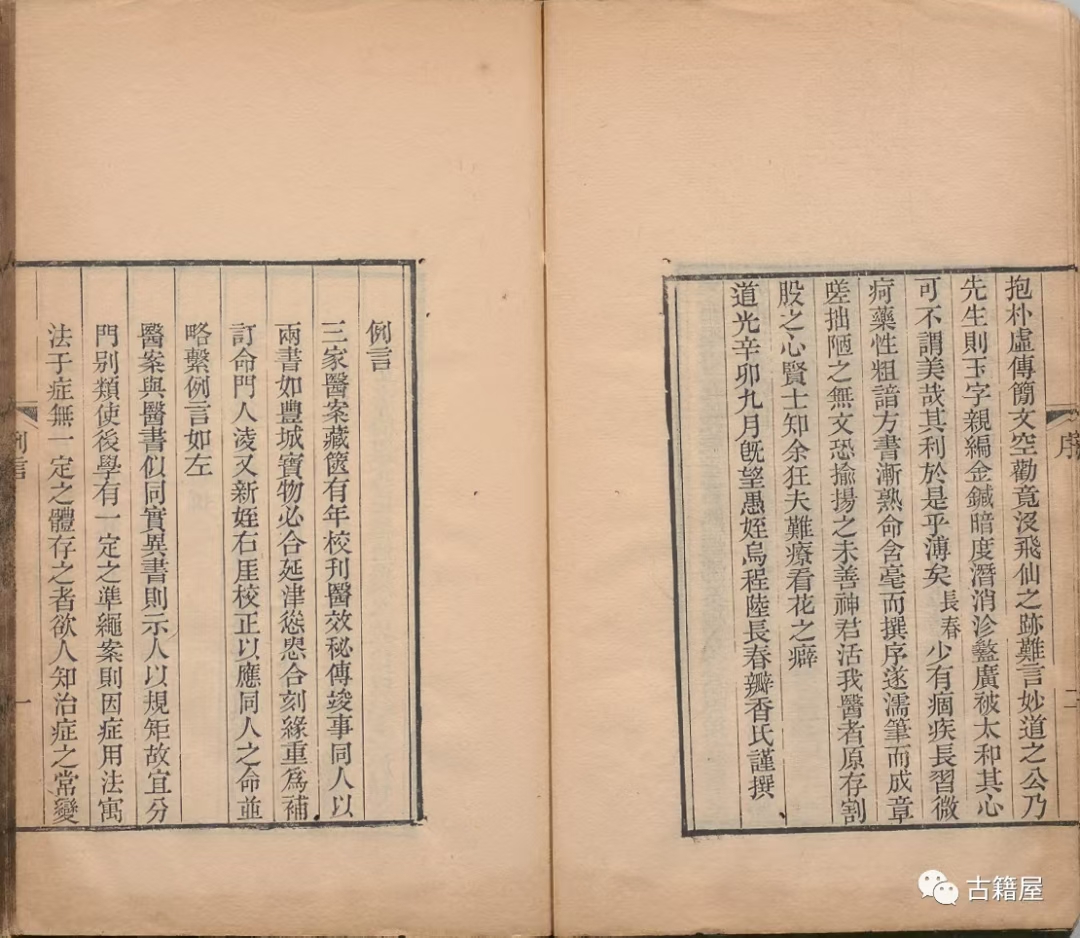 序
抱朴虛傳簡文空勸竟沒飛仙之跡難言妙道之公乃
先生則玉字親編金鍼暗度潛消沴盭廣被太和其心
可不謂美哉其利於是乎溥矣長春少有痼疾長習微
疴藥性粗諳方書漸熟命含毫而撰序遂濡筆而成章
嗟拙陋之無文恐揄揚之未善神君活我醫者原存割
股之心賢士知余狂夫難療看花之癖
道光辛卯九月旣望愚姪烏程陸長春瓣香氏謹撰
二
例言
三家醫案藏篋有年校刊醫效秘傳竣事同人以
兩書如豐城寶物必合延津慫恿合刻緣重爲補
訂命門人淩又新姪右厓校正以應同人之命並
略繫例言如左
醫案與醫書似同實異書則示人以規矩故宜分
門别類使後學有一定之準繩案則因症用法寓
法于症無一定之體存之者欲人知治症之常變
例言
一
古籍屋